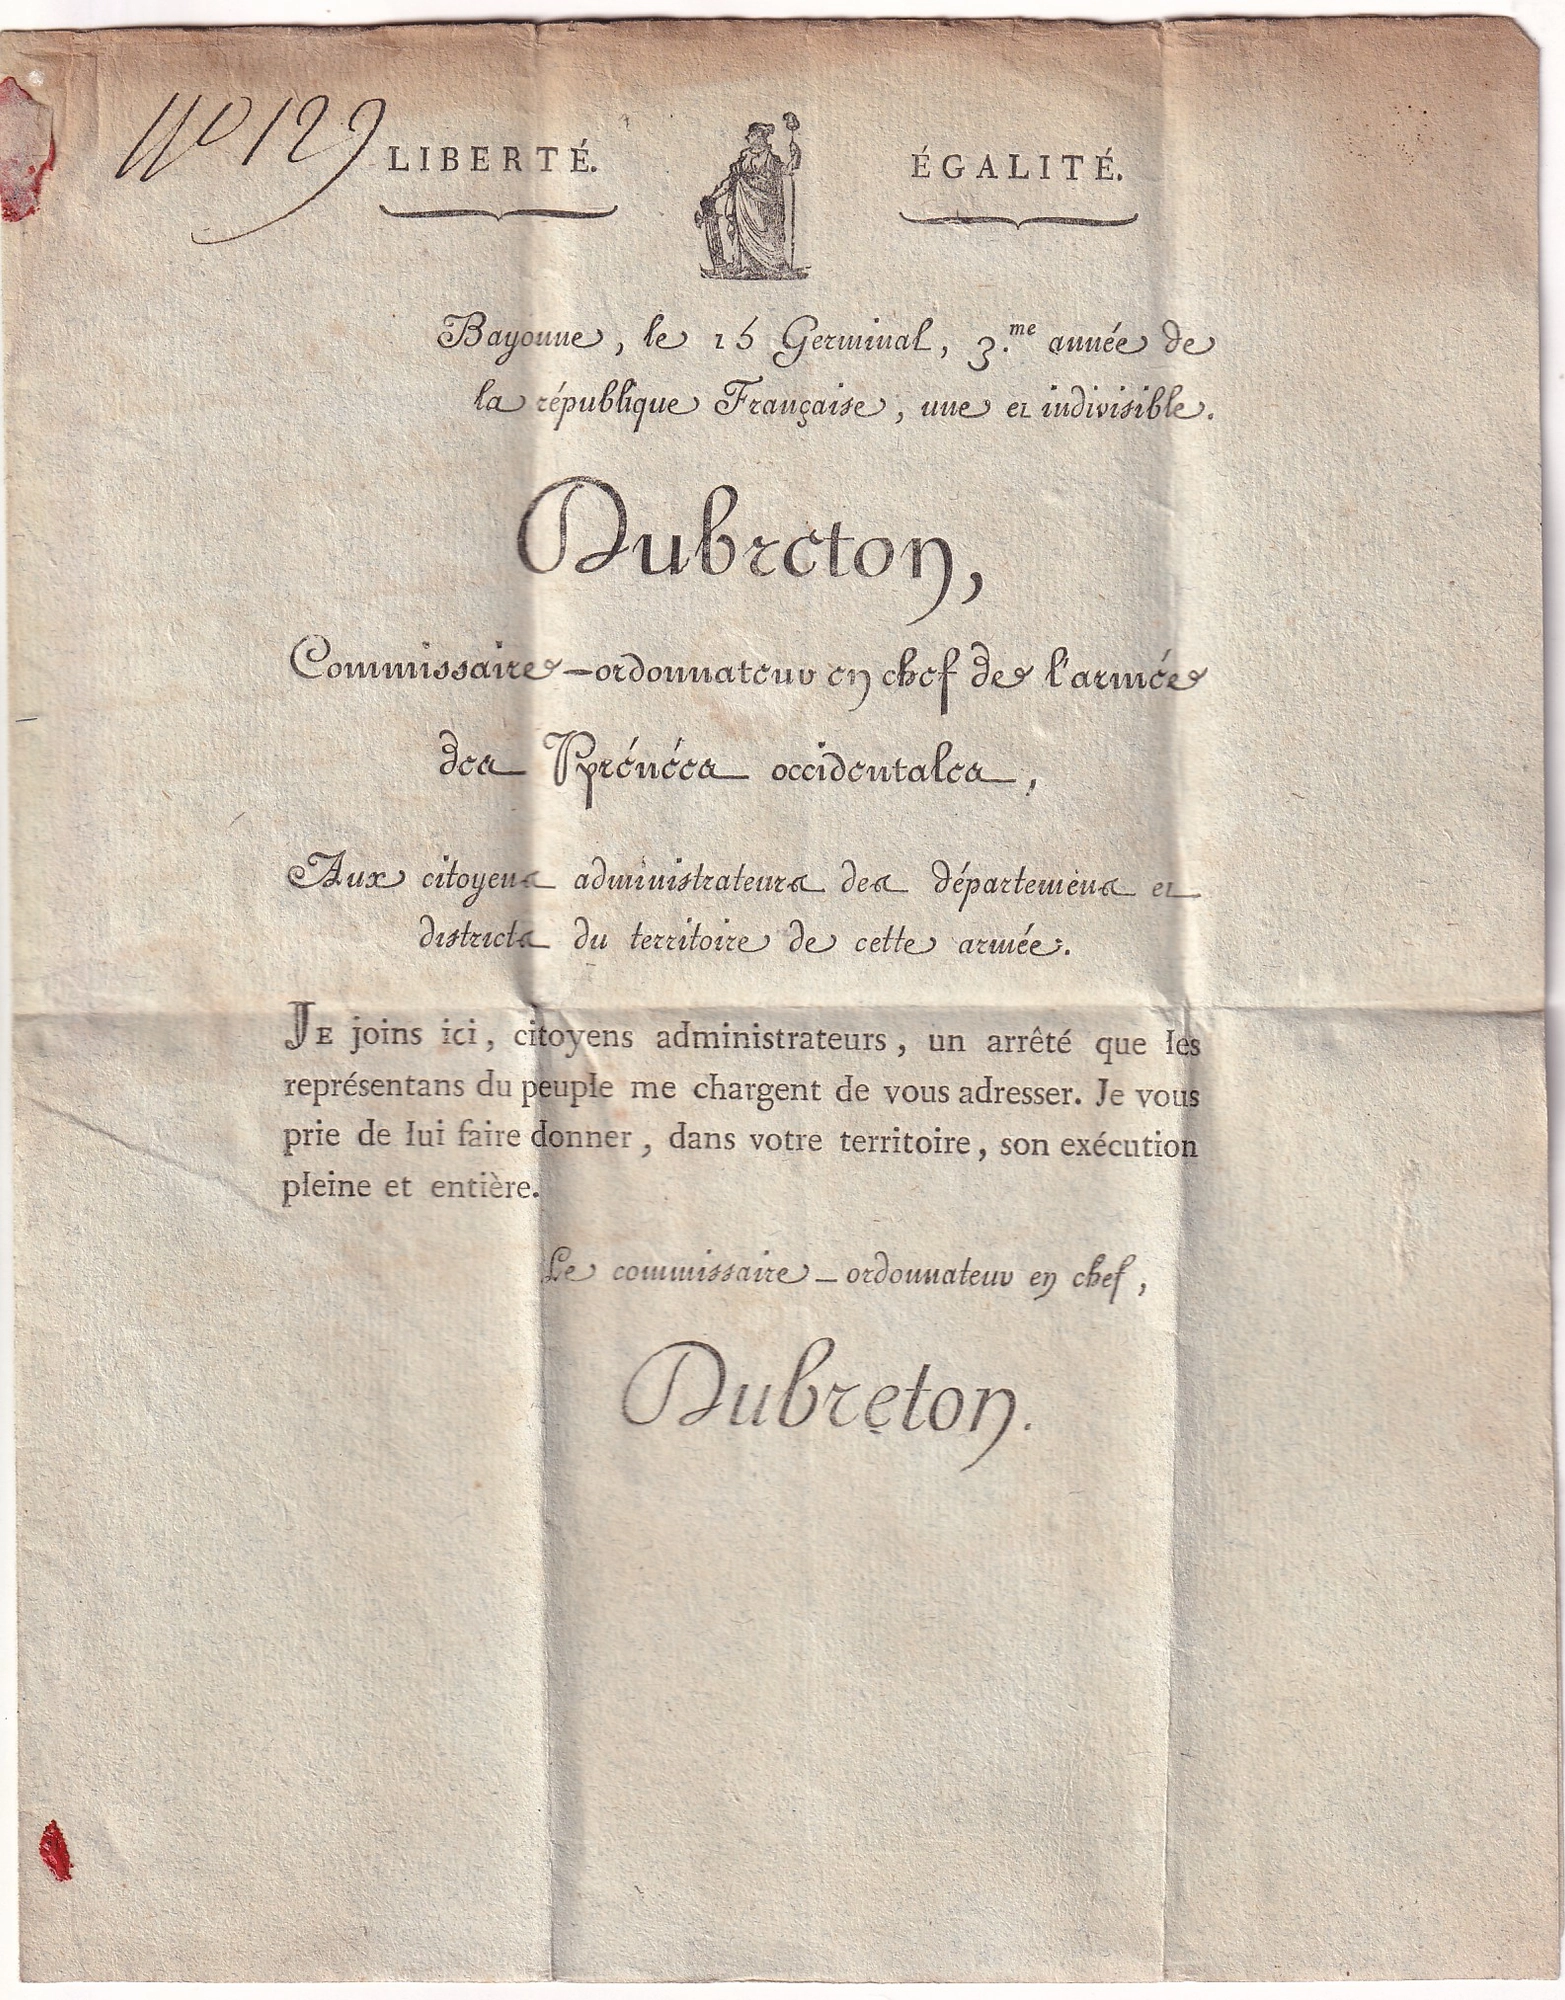 No 129
LIBERTÉ. ÉGALITÉ.
Bayonne, le 15 Germinal, 3.me année de
la république Française, une et indivisible.
Dubreton,
Commissaire-ordonnateur en chef de l'armée
des Pyrénées occidentales,
Aux citoyens administrateurs des départemens et
districts du territoire de cette armée.
JE joins ici, citoyens administrateurs, un arrêté que les
représentans du peuple me chargent de vous adresser. Je vous
prie de lui faire donner, dans votre territoire, son exécution
pleine et entière.
Le commissaire-ordonnateur en chef,
Dubreton.